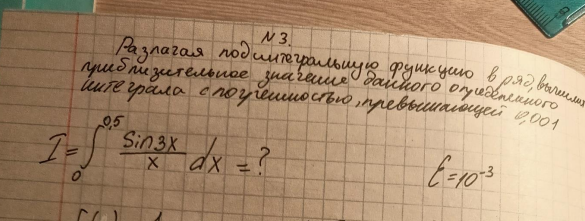 N 3.
Разлагая подинтегральную функцию в ряд, вычислить
приблизительное значение данного определенного
интеграла с погрешностью, превышающей 0,001
I = ∫₀^0,5 Sin3x/x dx = ?
ε = 10⁻³